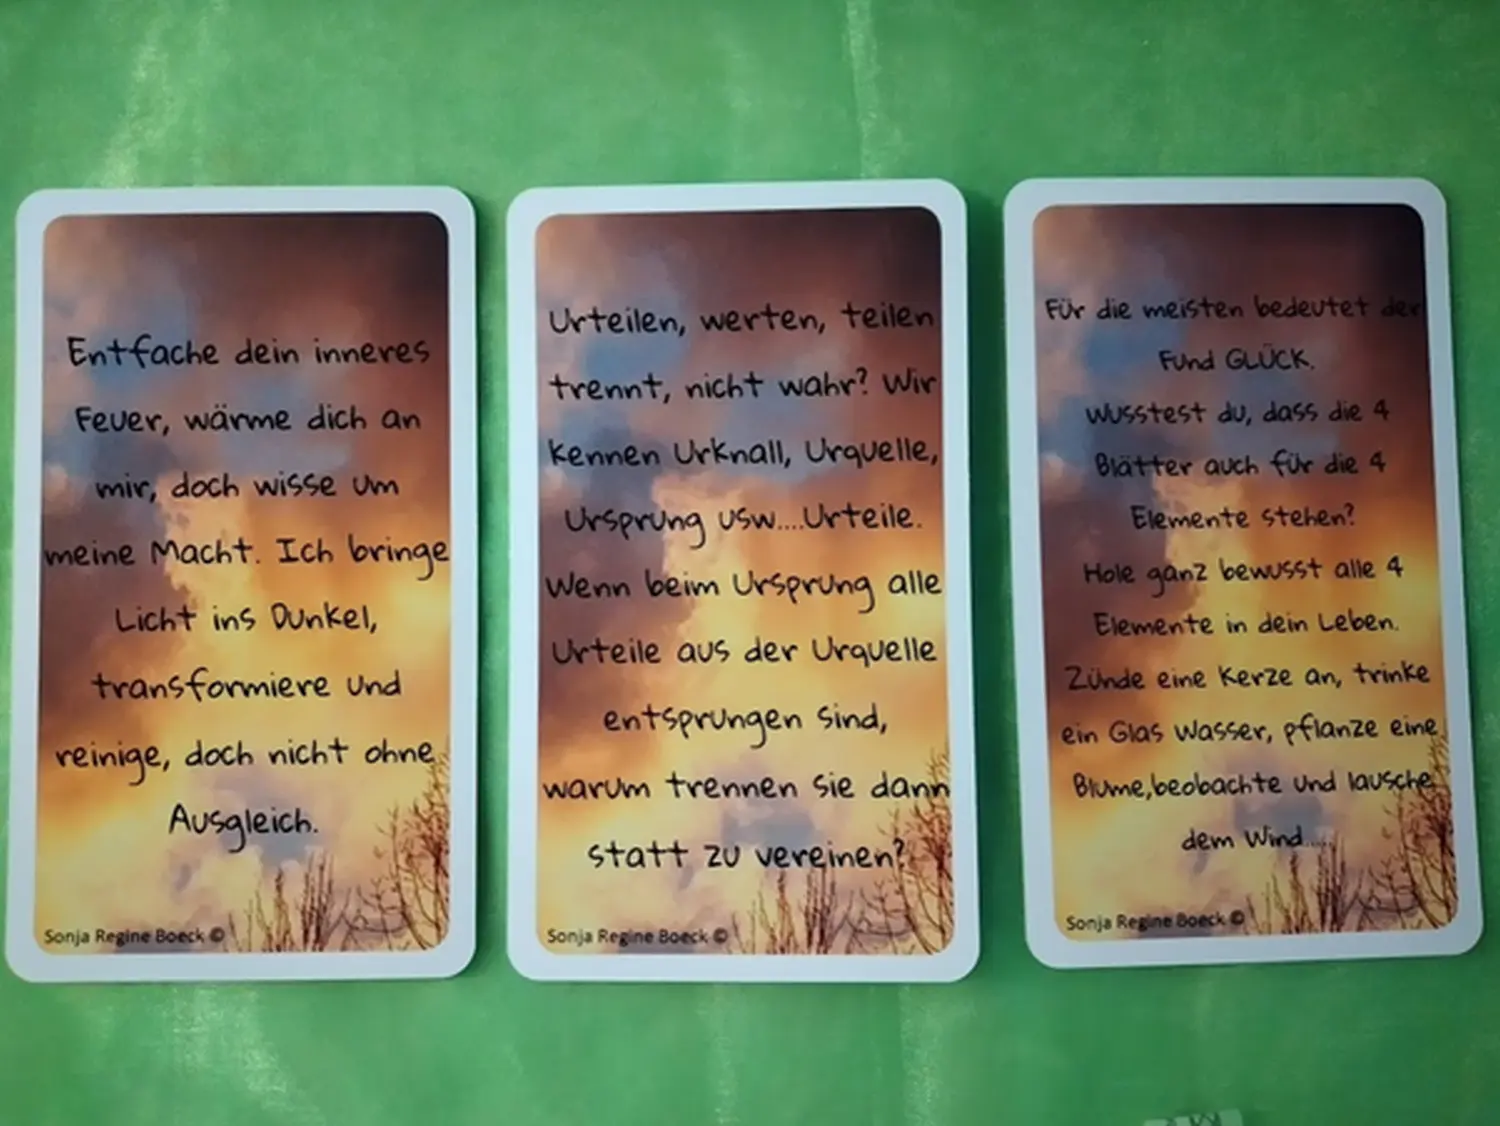 Entfache dein inneres
Feuer, wärme dich an
mir, doch wisse um
meine Macht. Ich bringe
Licht ins Dunkel,
transformiere und
reinige, doch nicht ohne
Ausgleich.
Sonja Regine Boeck ©
Urteilen, werten, teilen
trennt, nicht wahr? Wir
kennen Urknall, Urquelle,
Ursprung usw....Urteile.
Wenn beim Ursprung alle
Urteile aus der Urquelle
entsprungen sind,
warum trennen sie dann
statt zu vereinen?
Sonja Regine Boeck ©
Für die meisten bedeutet der
Fund GLÜCK.
Wusstest du, dass die 4
Blätter auch für die 4
Elemente stehen?
Hole ganz bewusst alle 4
Elemente in dein Leben.
Zünde eine Kerze an, trinke
ein Glas Wasser, pflanze eine
Blume,beobachte und lausche
dem Wind.....
Sonja Regine Boeck ©